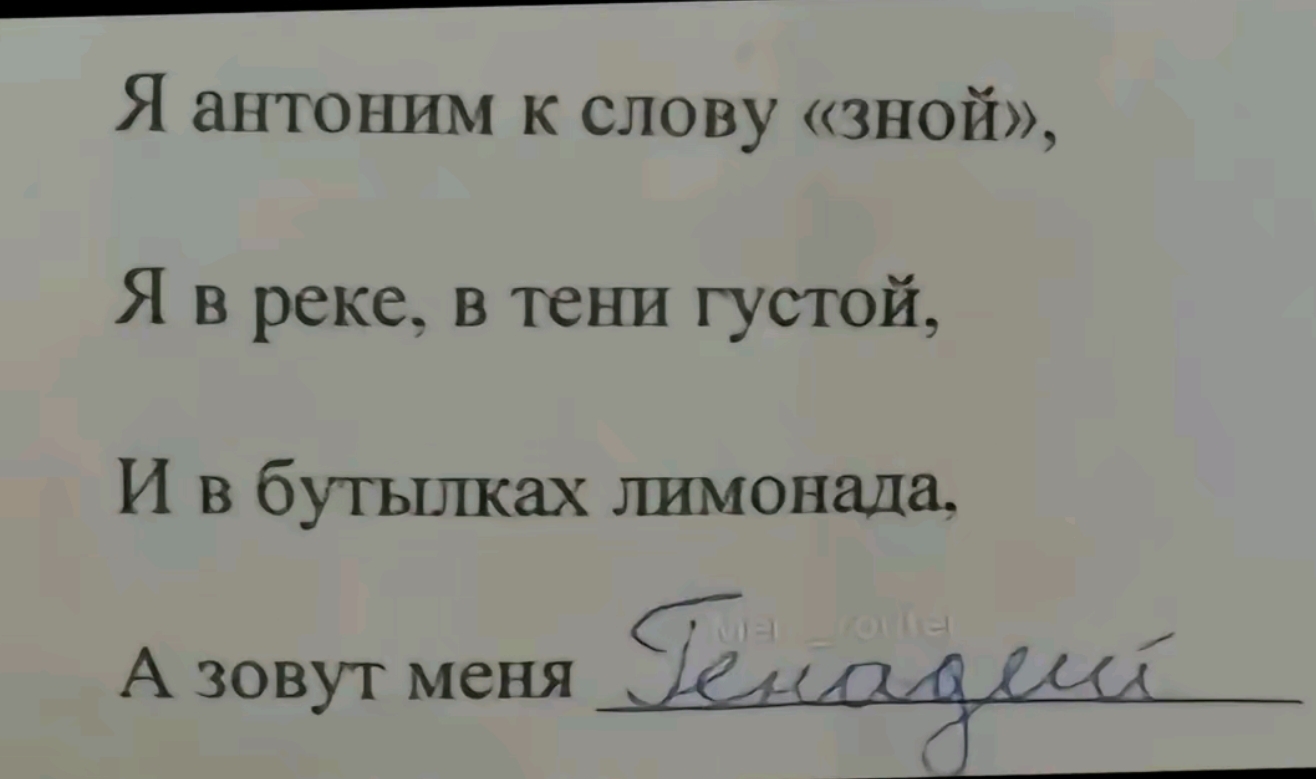 Я антоним к слову «зной»,
Я в реке, в тени густой,
И в бутылках лимонада,
А зовут меня Генадий